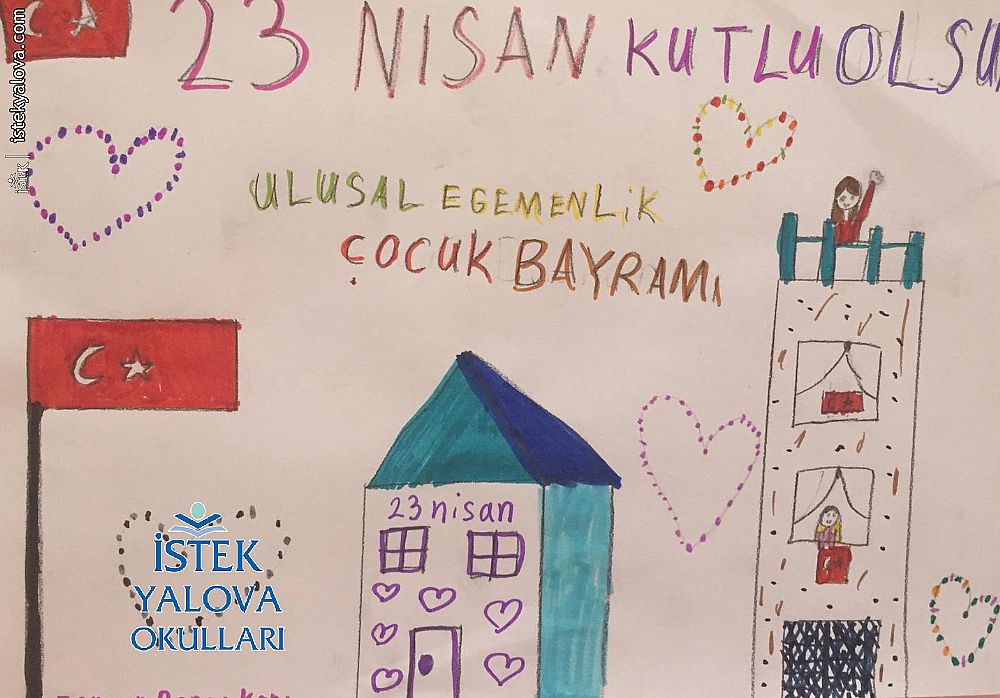 23 NISAN KUTLU OLSU
ULUSAL EGEMENLiK
ÇOCUK BAYRAMI
23 nisan
İSTEK
YALOVA
OKULLARI
istekyalova.com
İSTEK